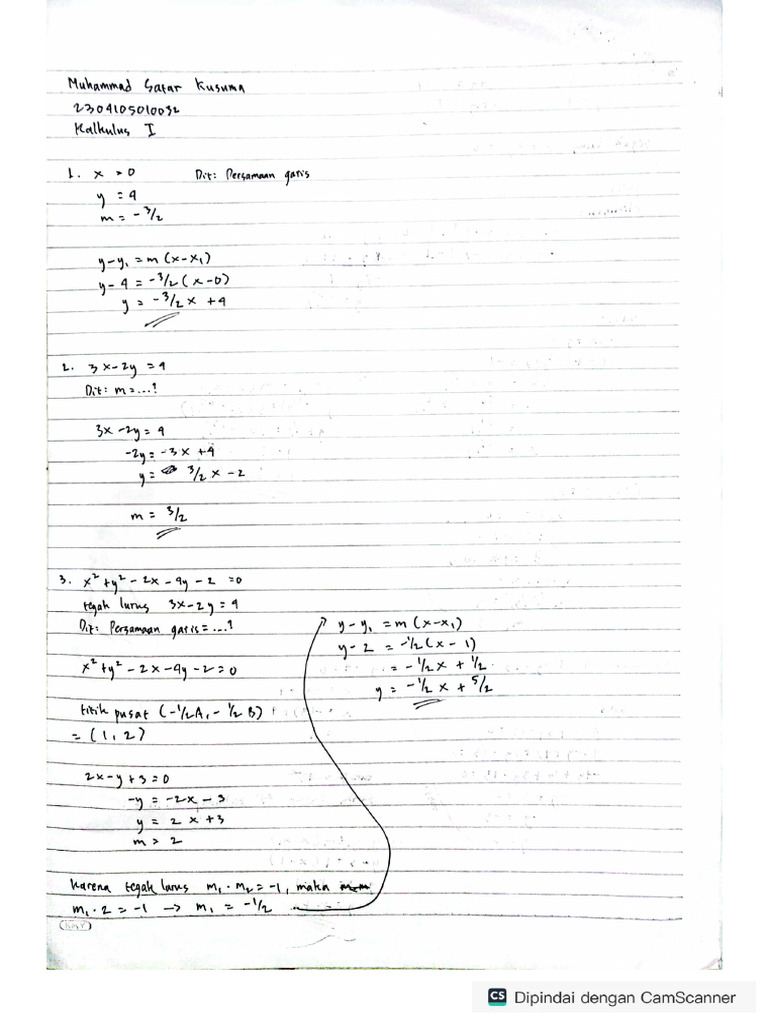 Muhammad Satar Kusuma
2304105010032
Kalkulus I
1. x = 0 Dit: Persamaan garis
y = 4
m = -3/2
y-y₁ = m (x-x₁)
y-4 = -3/2 (x-0)
y = -3/2 x +4
2. 3x-2y = 4
Dit: m = ...?
3x -2y = 4
-2y = -3x +4
y = 3/2 x -2
m = 3/2
3. x² + y² - 2x - 4y - 2 = 0
tegak lurus 3x-2y = 4
Dit: Persamaan garis = ...?
x² + y² - 2x - 4y - 2 = 0
titik pusat (-1/2A, -1/2 B)
= (1, 2)
2x-y+3=0
-y = -2x - 3
y = 2x+3
m = 2
Karena tegak lurus m₁ . m₂ = -1, maka
m₁ . 2 = -1 -> m₁ = -1/2
y - y₁ = m (x-x₁)
y - 2 = -1/2 (x - 1)
= -1/2 x + 1/2
y = -1/2 x + 5/2
CS Dipindai dengan CamScanner